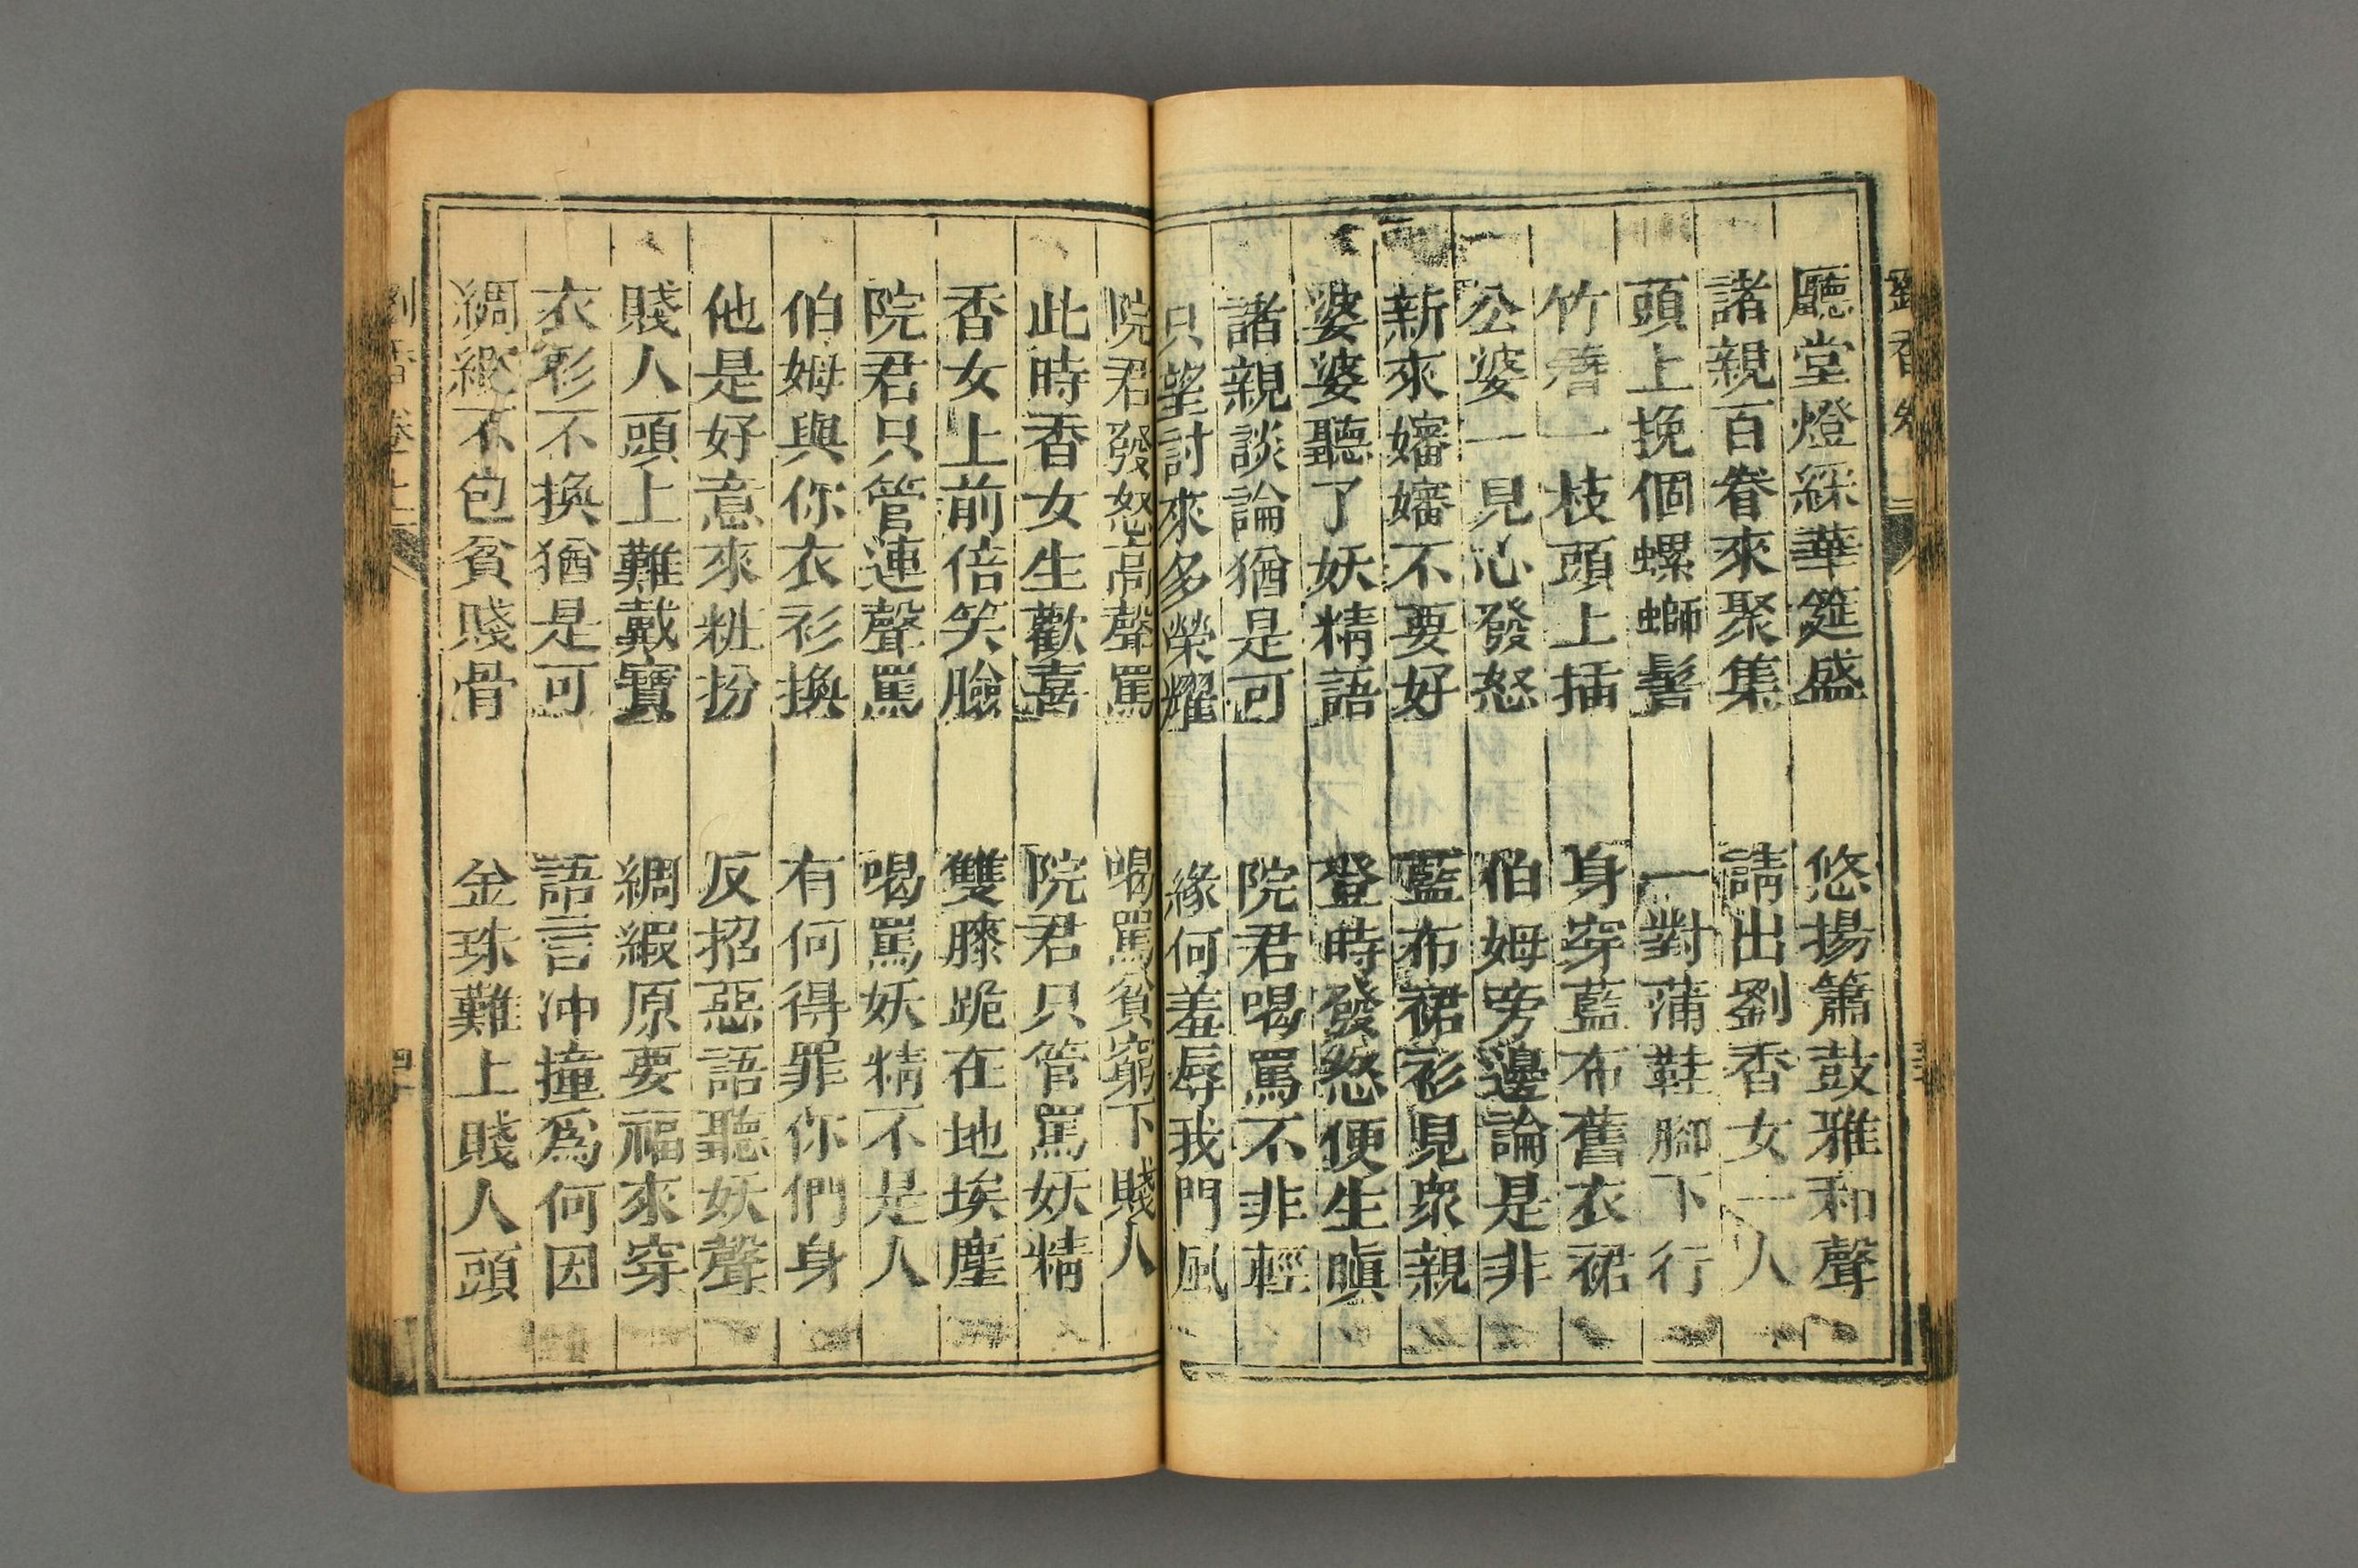 劉香卷
廳堂燈綵華筵盛 悠揚簫鼓雅和聲
諸親百眷來聚集 請出劉香女一人
頭上挽個螺螄髻 一對蒲鞋腳下行
竹簪一枝頭上插 身穿藍布舊衣裙
公婆一見心發怒 伯姆旁邊論是非
新來嬸嬸不要好 藍布裙衫見眾親
婆婆聽了妖精語 登時發怒便生嗔
諸親談論猶是可 院君喝罵不非輕
只望討來多榮耀 緣何羞辱我門風
院君發怒高聲罵 喝罵貧窮下賤人
此時香女生歡喜 院君只管罵妖精
香女上前倍笑臉 雙膝跪在地埃塵
院君只管連聲罵 喝罵妖精不是人
伯姆與你衣衫換 有何得罪你們身
他是好意來粧扮 反招惡語聽妖聲
賤人頭上難戴寶 綢緞原要福來穿
衣衫不換猶是可 語言冲撞為何因
綢緞不包貧賤骨 金珠難上賤人頭
劉香卷上 四十